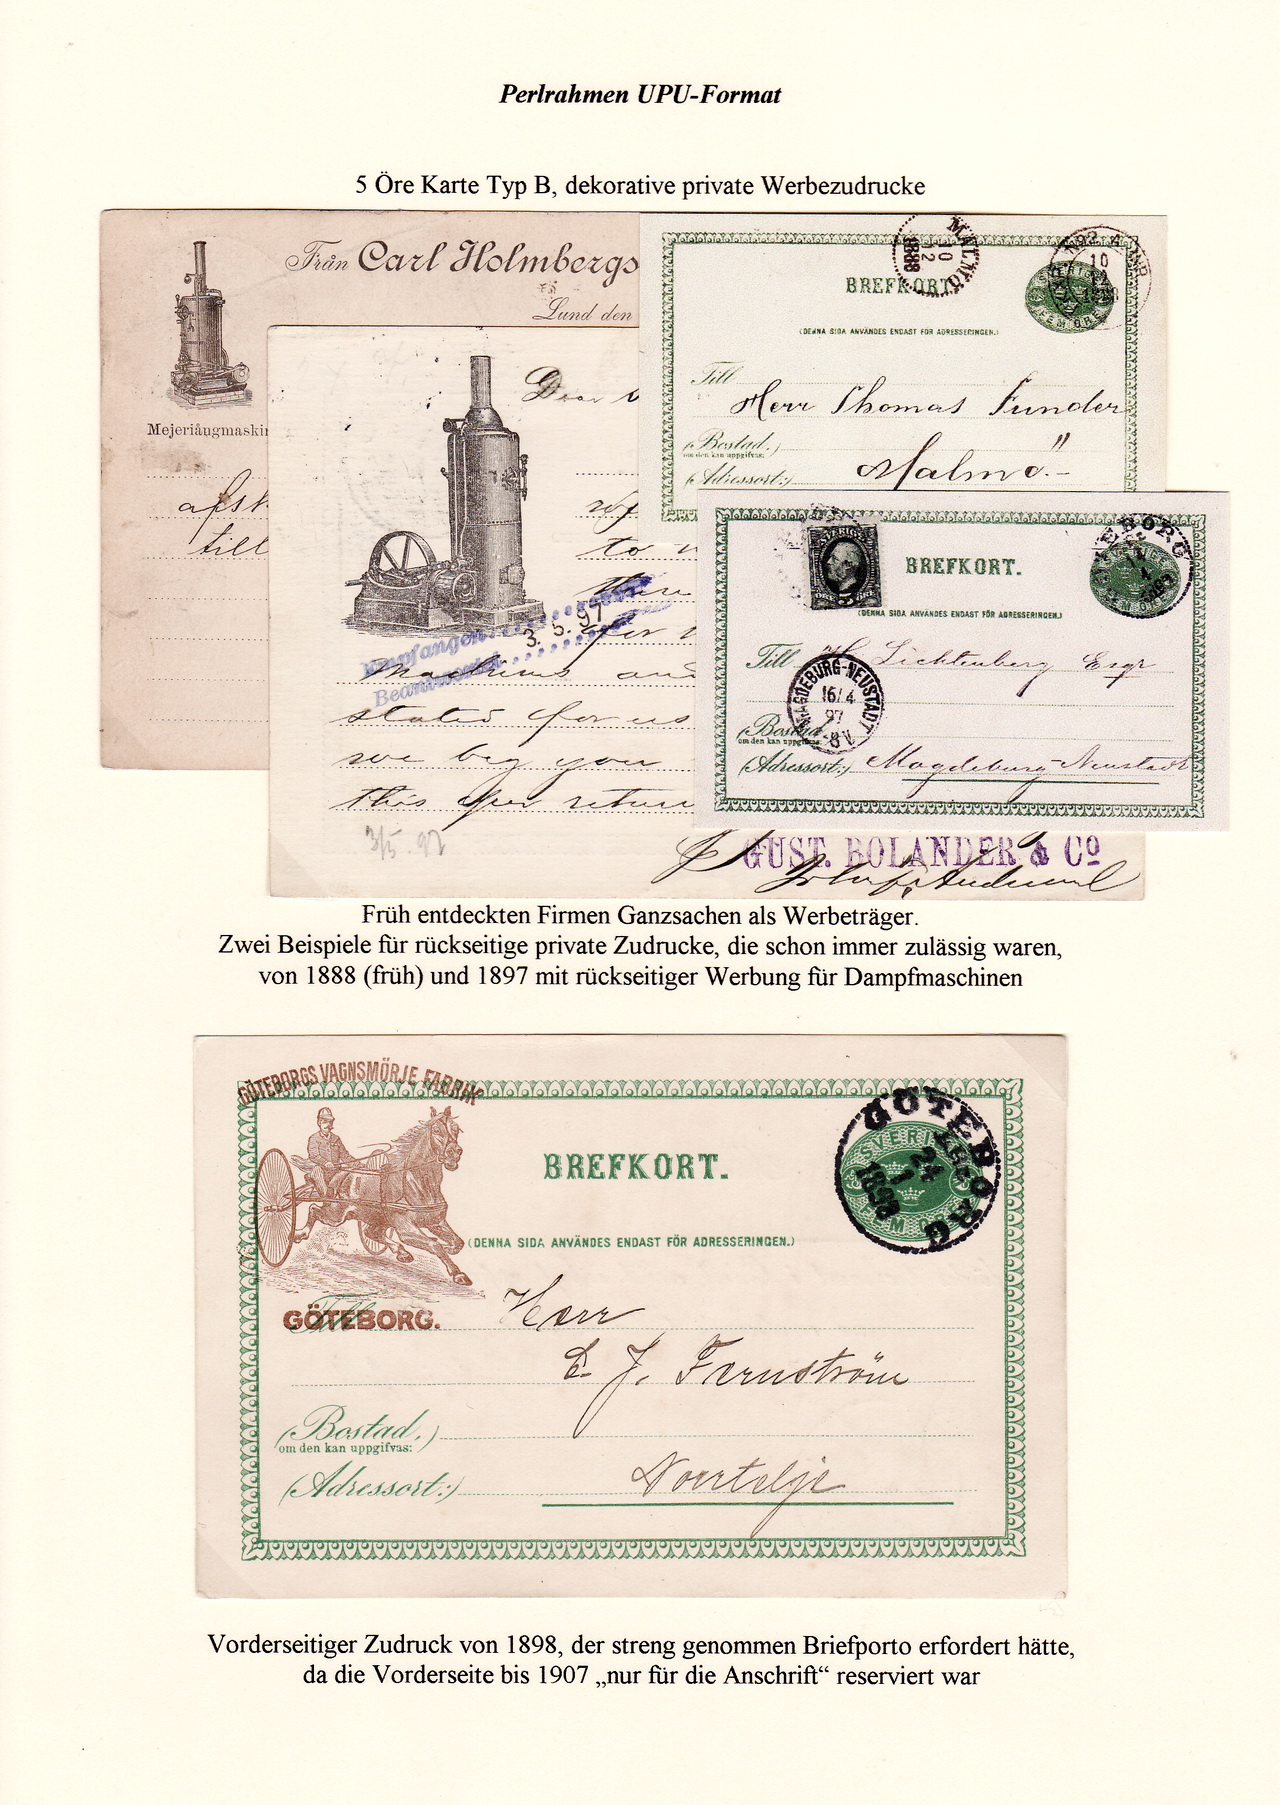 Perlrahmen UPU-Format
5 Öre Karte Typ B, dekorative private Werbezudrucke
Från Carl Holmbergs
Lund den
Mejeriångmaskin
afsk
till
MALMÖ
10
12
1888
BREFKORT.
10
12
SVERIGE
FEM ÖRE
(DENNA SIDA ANVÄNDES ENDAST FÖR ADRESSERINGEN.)
Till Herr Thomas Funder
(Bostad,)
om den kan uppgifvas:
(Adressort:) Malmö
Dear
to
Empfangen 3. 5. 97
Beantwortet
for
Machines and
stated for us
we beg you
this per return
3/5. 97
GUST. BOLANDER & Co
SVERIGE
5 ÖRE
BREFKORT.
GÖTEBORG
14
4
1897
FEM ÖRE
(DENNA SIDA ANVÄNDES ENDAST FÖR ADRESSERINGEN.)
Till H. Lichtenberg Esqr
MAGDEBURG-NEUSTADT
16/4
97
8 V.
(Bostad,)
om den kan uppgifvas:
(Adressort:) Magdeburg-Neustadt
Früh entdeckten Firmen Ganzsachen als Werbeträger.
Zwei Beispiele für rückseitige private Zudrucke, die schon immer zulässig waren,
von 1888 (früh) und 1897 mit rückseitiger Werbung für Dampfmaschinen
GÖTEBORGS VAGNSMÖRJE FABRIK
GÖTEBORG.
BREFKORT.
GÖTEBORG
24
1
1898
SVERIGE
FEM ÖRE
(DENNA SIDA ANVÄNDES ENDAST FÖR ADRESSERINGEN.)
Till Herr
E. J. Fernström
(Bostad,)
om den kan uppgifvas:
(Adressort:) Norrtelje
Vorderseitiger Zudruck von 1898, der streng genommen Briefporto erfordert hätte,
da die Vorderseite bis 1907 „nur für die Anschrift“ reserviert war